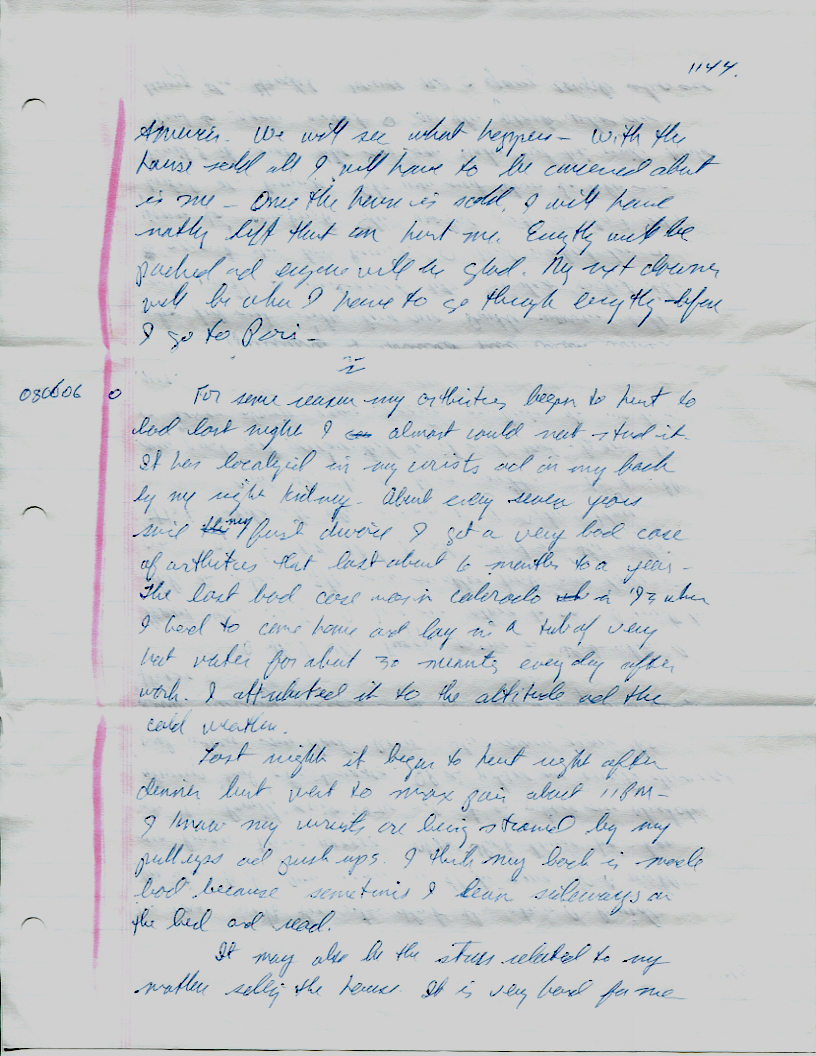 1144.
America. We will see what happens - With the
house sold all I will have to be concerned about
is me - Once the house is sold, I will have
nothing left that can hurt me. Everything will be
packed and everyone will be glad. My next downer
will be when I have to go through everything before
I go to Paris -
030606 0 For some reason my arthritis began to hurt so
bad last night I almost could not stand it.
It has localized in my wrists and in my back
by my right kidney. About every seven years
since my first divorce I get a very bad case
of arthritis that last about 6 months to a year -
The last bad case was in Colorado in '93 when
I had to come home and lay in a tub of very
hot water for about 30 minutes every day after
work. I attributed it to the altitude and the
cold weather.
Last night it began to hurt right after
dinner but went to max pain about 11 PM -
I know my wrists are being strained by my
pull ups and push ups. I think my back is made
bad because sometimes I lean sideways on
the bed and read.
It may also be the stress related to my
mother selling the house. It is very hard for me